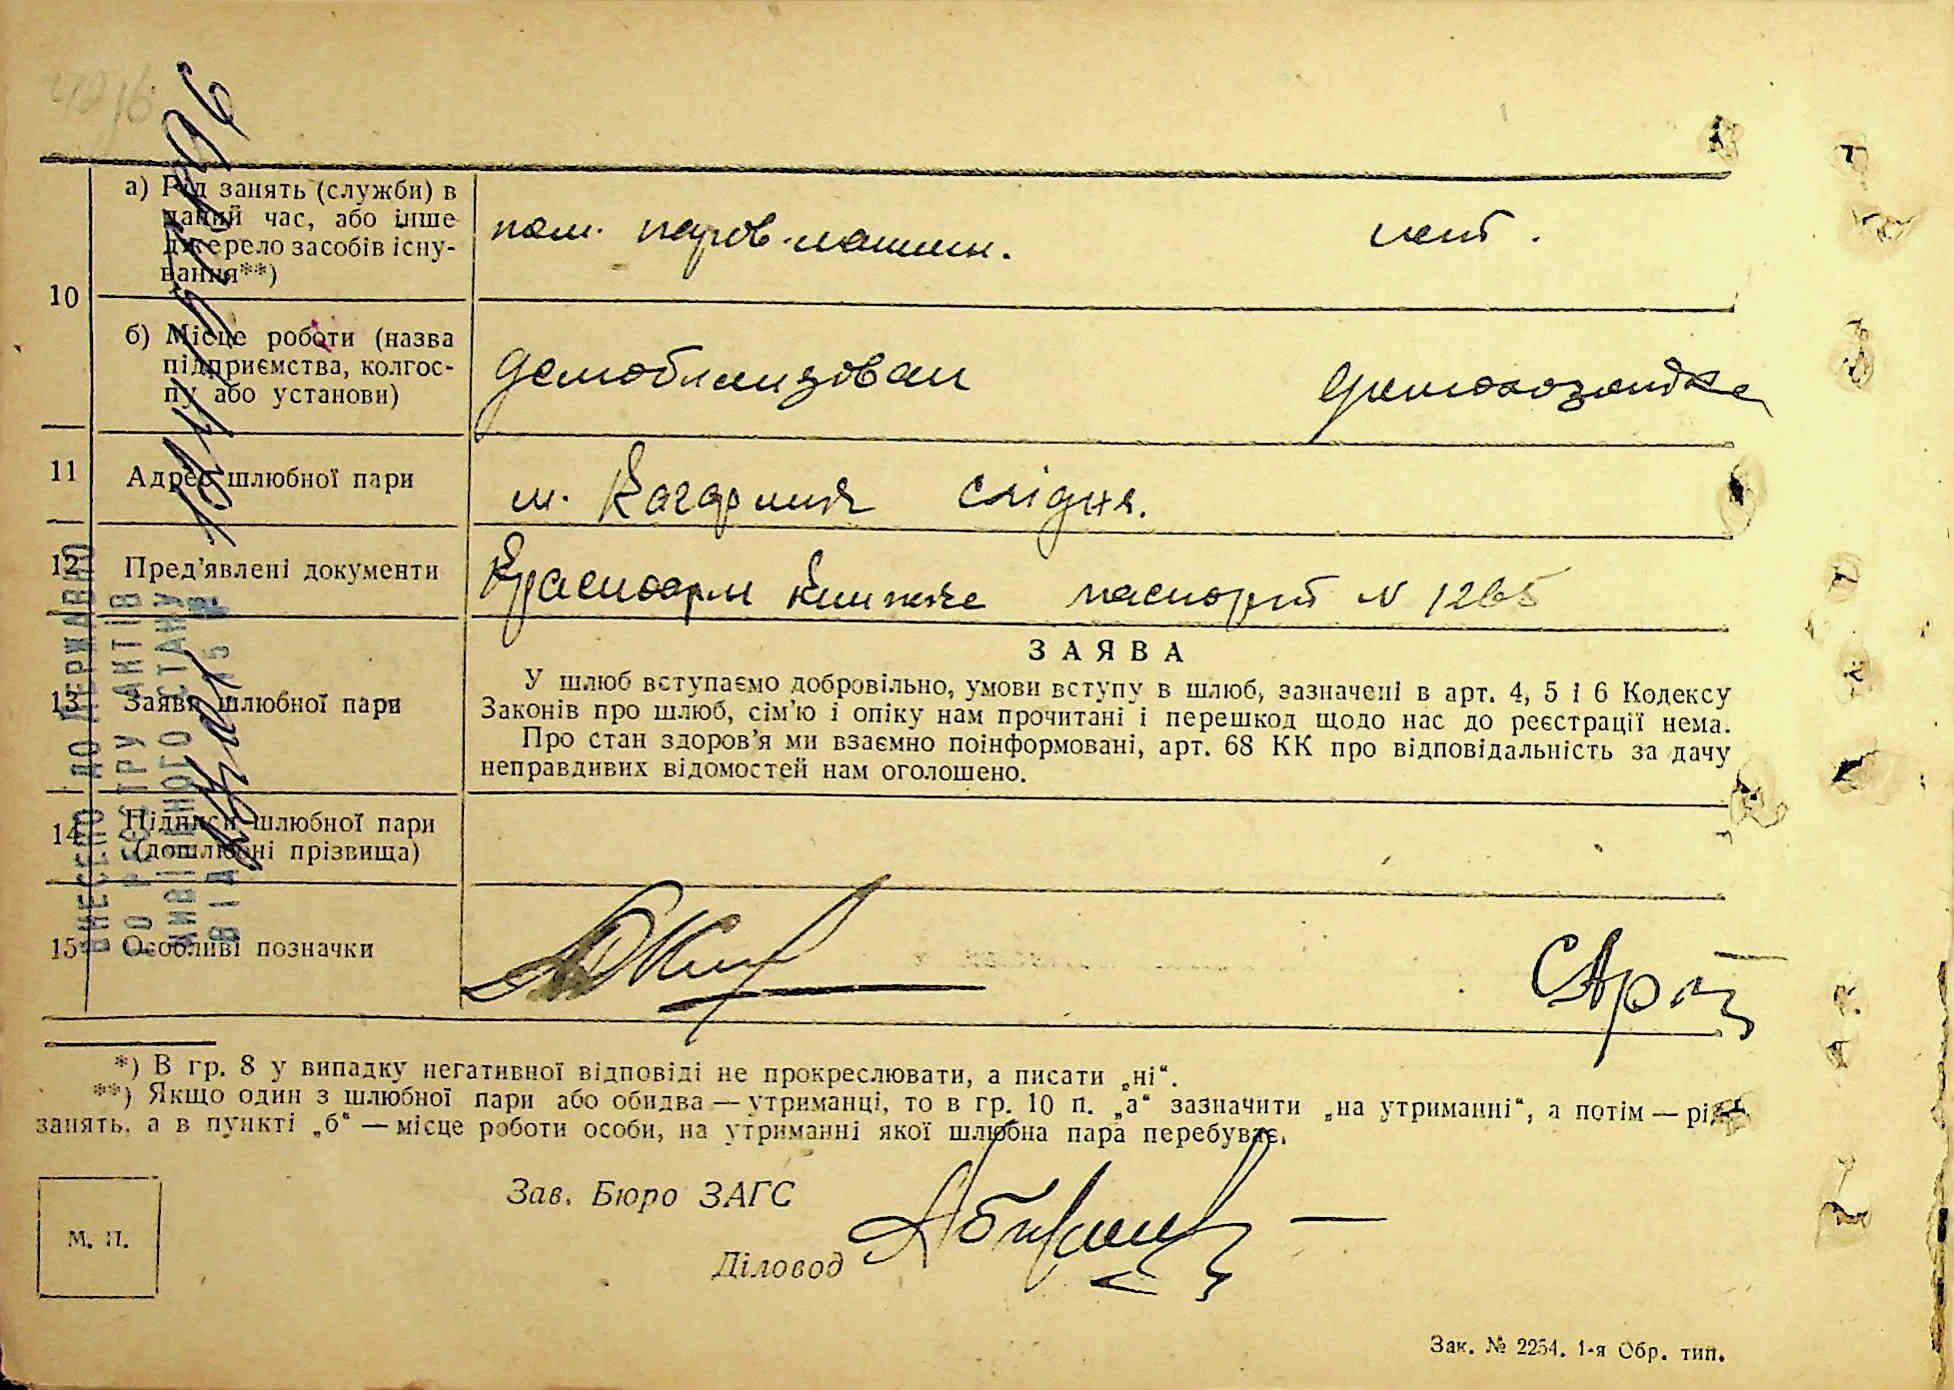 10
а) Рід занять (служби) в
даний час, або інше
джерело засобів існу-
вання**)
пом. паров. машин.
нет.
б) Місце роботи (назва
підприємства, колгос-
пу або установи)
демобилизован
домохозяйка
11
Адрес шлюбної пари
м. Кагарлик
12
Пред'явлені документи
Красноарм книжке паспорт N 1265
13
Заяви шлюбної пари
ЗАЯВА
У шлюб вступаємо добровільно, умови вступу в шлюб, зазначені в арт. 4, 5 і 6 Кодексу
Законів про шлюб, сім'ю і опіку нам прочитані і перешкод щодо нас до реєстрації нема.
Про стан здоров'я ми взаємно поінформовані, арт. 68 КК про відповідальність за дачу
неправдивих відомостей нам оголошено.
14
Підписи шлюбної пари
(дошлюбні прізвища)
15
Особливі позначки
ВНЕСЕНО ДО ДЕРЖАВНО
ГО РЕЄСТРУ АКТІВ
ЦИВІЛЬНОГО СТАНУ
ВІД
*) В гр. 8 у випадку негативної відповіді не прокреслювати, а писати „ні“.
**) Якщо один з шлюбної пари або обидва — утриманці, то в гр. 10 п. „а“ зазначити „на утриманні“, а потім — рід
занять, а в пункті „б“ — місце роботи особи, на утриманні якої шлюбна пара перебуває.
Зав. Бюро ЗАГС
Діловод
М. П.
Зак. № 2254. 1-я Обр. тип.